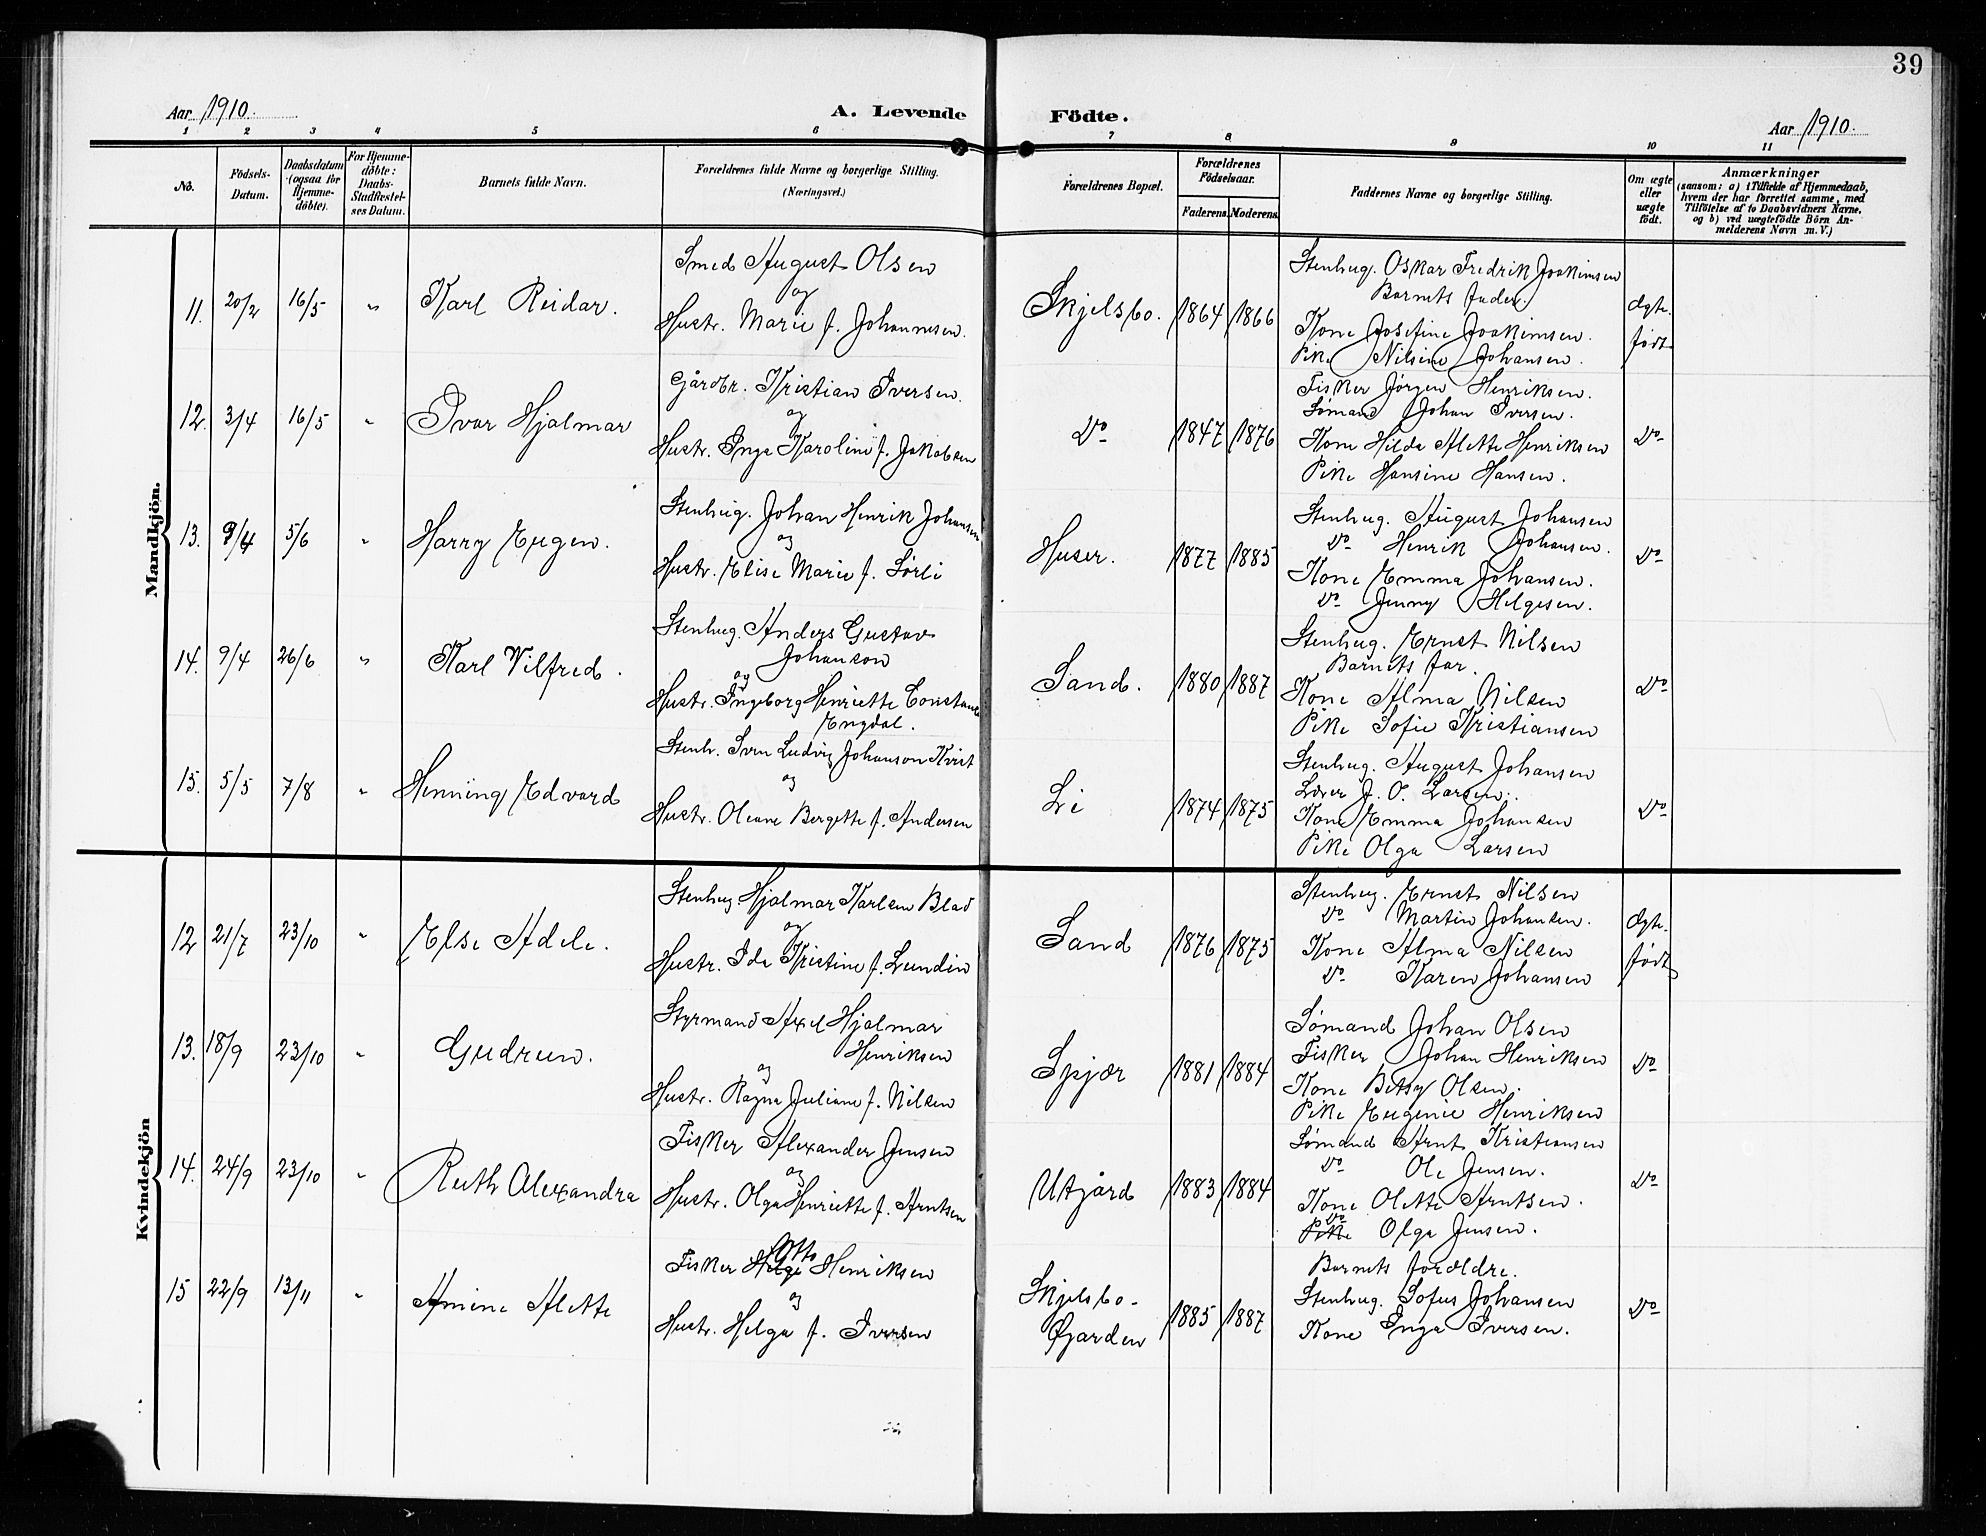 39
Aar 1910.
A. Levende Födte.
Aar 1910.
1 2 3 4 5 6 7 8 9 10 11
No. Födsels-Datum. Daabsdatum (ogsaa for Hjemme-döbte). For Hjemme-döbte: Daabs-Stadfæstel-ses Datum. Barnets fulde Navn. Forældrenes fulde Navne og borgerlige Stilling. (Næringsvei.) Forældrenes Bopæl. Forældrenes Födselsaar. Faderens. Moderens. Faddernes Navne og borgerlige Stilling. Om ægte eller uægte födt. Anmærkninger (saasom: a) i Tilfælde af Hjemmedaab, hvem der har forrettet samme, med Tilföielse af to Daabsvidners Navne, og b) ved uægtefödte Börn An-melderens Navn m. V.)
Mandkjön.
11. 20/2 16/5 " Karl Reidar.
Smed August Olsen
og
Hustr. Marie f. Johannesen.
Skjelsbo. 1864 1866
Stenhug. Oskar Fredrik Joakimsen
Barnets Fader.
Kone Josefine Joakimsen.
Pike Nilsine Johansen.
Ægte.
født
12. 3/4 16/5 " Ivar Hjalmar
Gårdbr. Kristian Iversen.
og
Hustr. Inga Karoline f. Jakobsen
Do 1847 1876
Fisker Jørgen Henriksen.
Sømand Johan Iversen.
Kone Hilda Alette Henriksen
Pike Hansine Hansen.
Do
13. 9/4 5/6 " Harry Eugen.
Stenhug. Johan Henrik Johansen
og
Hustr. Elise Marie f. Sørli
Huser. 1877 1885
Stenhug. August Johansen
Do Henrik Johansen.
Kone Emma Johansen.
Do Jenny Helgesen.
Do
14. 9/4 26/6 " Karl Vilfred.
Stenhug. Anders Gustav
Johanson
og
Hustr. Ingeborg Henriette Constanse
Engdal.
Sand. 1880 1887
Stenhug. Ernst Nilsen
Barnets far.
Kone Alma Nilsen
Pike Sofie Kristiansen
Do
15. 5/5 7/8 " Henning Edvard
Stenh. Sven Ludvig Johanson Kvist
og
Hustr. Oleane Bergette f. Andersen
Li 1874 1875
Stenhug. August Johansen
Lærer J. O. Larsen.
Kone Emma Johansen
Pike Olga Larsen
Do
Kvindekjön
12 21/7 23/10 " Else Adele.
Stenhug Hjalmar Karlsen Blad
og
Hustr. Ida Kristine f. Lundin
Sand 1876 1875
Stenhug. Ernst Nilsen
Do Martin Johansen.
Kone Alma Nilsen
Do Karen Johansen
Ægte.
født
13. 18/9 23/10 " Gudrun.
Styrmand Axel Hjalmar
Henriksen
og
Hustr. Ragna Juliane f. Nilsen
Spjær 1881 1884
Sømand Johan Olsen
Fisker Johan Henriksen
Kone Betsy Olsen.
Pike Eugenie Henriksen
Do
14. 24/9 23/10 " Ruth Alexandra
Fisker Alexander Jensen
og
Hustr. Olga Henriette f. Arntsen
Utgård 1883 1884
Sømand Arnt Kristiansen
Do Ole Jensen.
Kone Olette Arntsen.
Do
Pike Olga Jensen.
Do
15 22/9 13/11 " Amine Alette
Otto
Fisker Helge Henriksen
og
Hustr. Helga f. Iversen
Skjelsbo-
Øgarden 1885 1887
Barnets forældre.
Stenhug. Sofus Johansen
Kone Inga Iversen.
Do